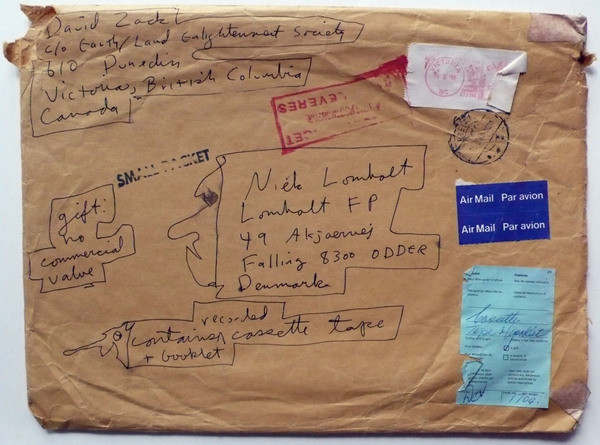 David Zack
c/o Earth/Land Enlightenment Society
610 Dunedin
Victoria, British Columbia
Canada
LEVERES
SMALL PACKET
gift:
no
commercial
value
Niels Lomholt
Lomholt FP
49 Akjaervej
Falling 8300 ODDER
Denmark
Air Mail Par avion
Air Mail Par avion
recorded
contains cassette tape
+ booklet
Cassette